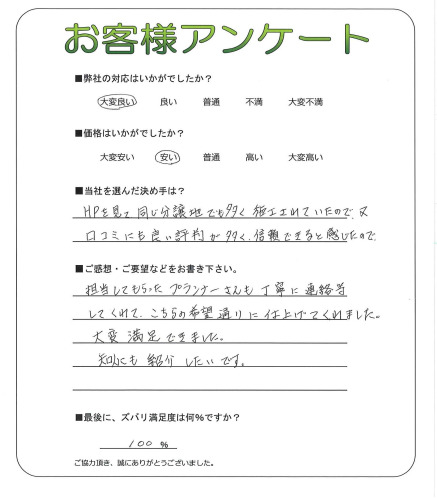 お客様アンケート
■弊社の対応はいかがでしたか？
大変良い 良い 普通 不満 大変不満
■価格はいかがでしたか？
大変安い 安い 普通 高い 大変高い
■当社を選んだ決め手は？
HPを見て同じ分譲地でも多く施工されていたので、又
口コミにも良い評判が多く、信頼できると感じたので
■ご感想・ご要望などをお書き下さい。
担当してもらったプランナーさんも丁寧に連絡等
してくれて、こちらの希望通りに仕上げてくれました。
大変満足できました。
知人にも紹介したいです。
■最後に、ズバリ満足度は何%ですか？
100 %
ご協力頂き、誠にありがとうございました。